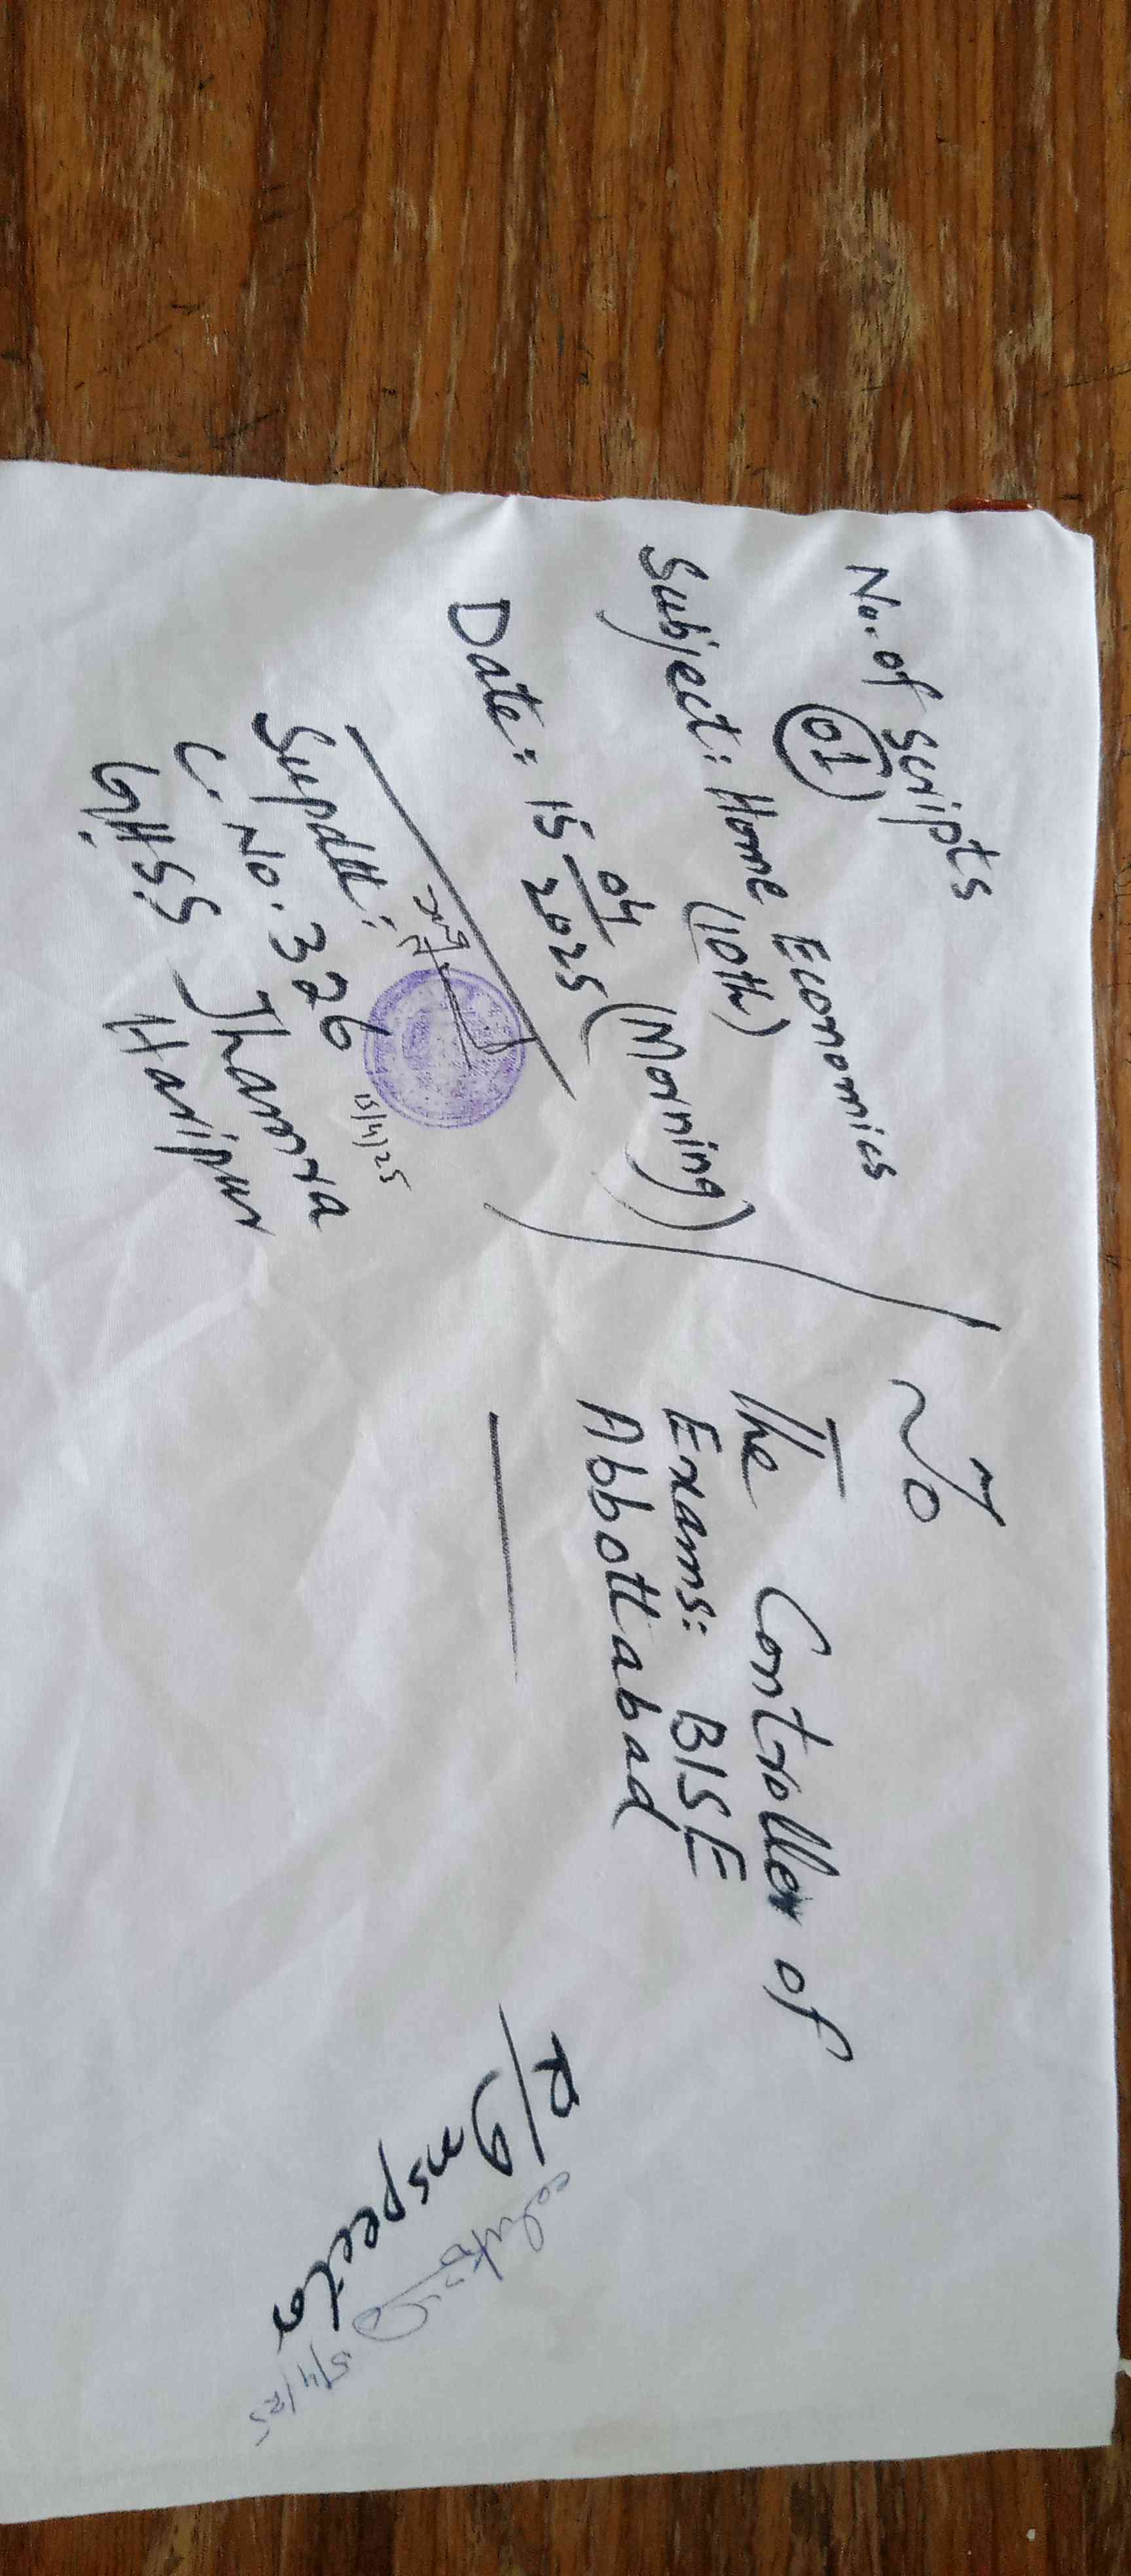 No. of Scripts
01
Subject: Home Economics
(10th)
Date: 15/04/2025 (Morning)
Supdtt:
15/4/25
C. No. 326
GHSS Tharna
Haripur
To
The Controller of
Exams: BISE
Abbottabad
R/Inspector
15/4/25